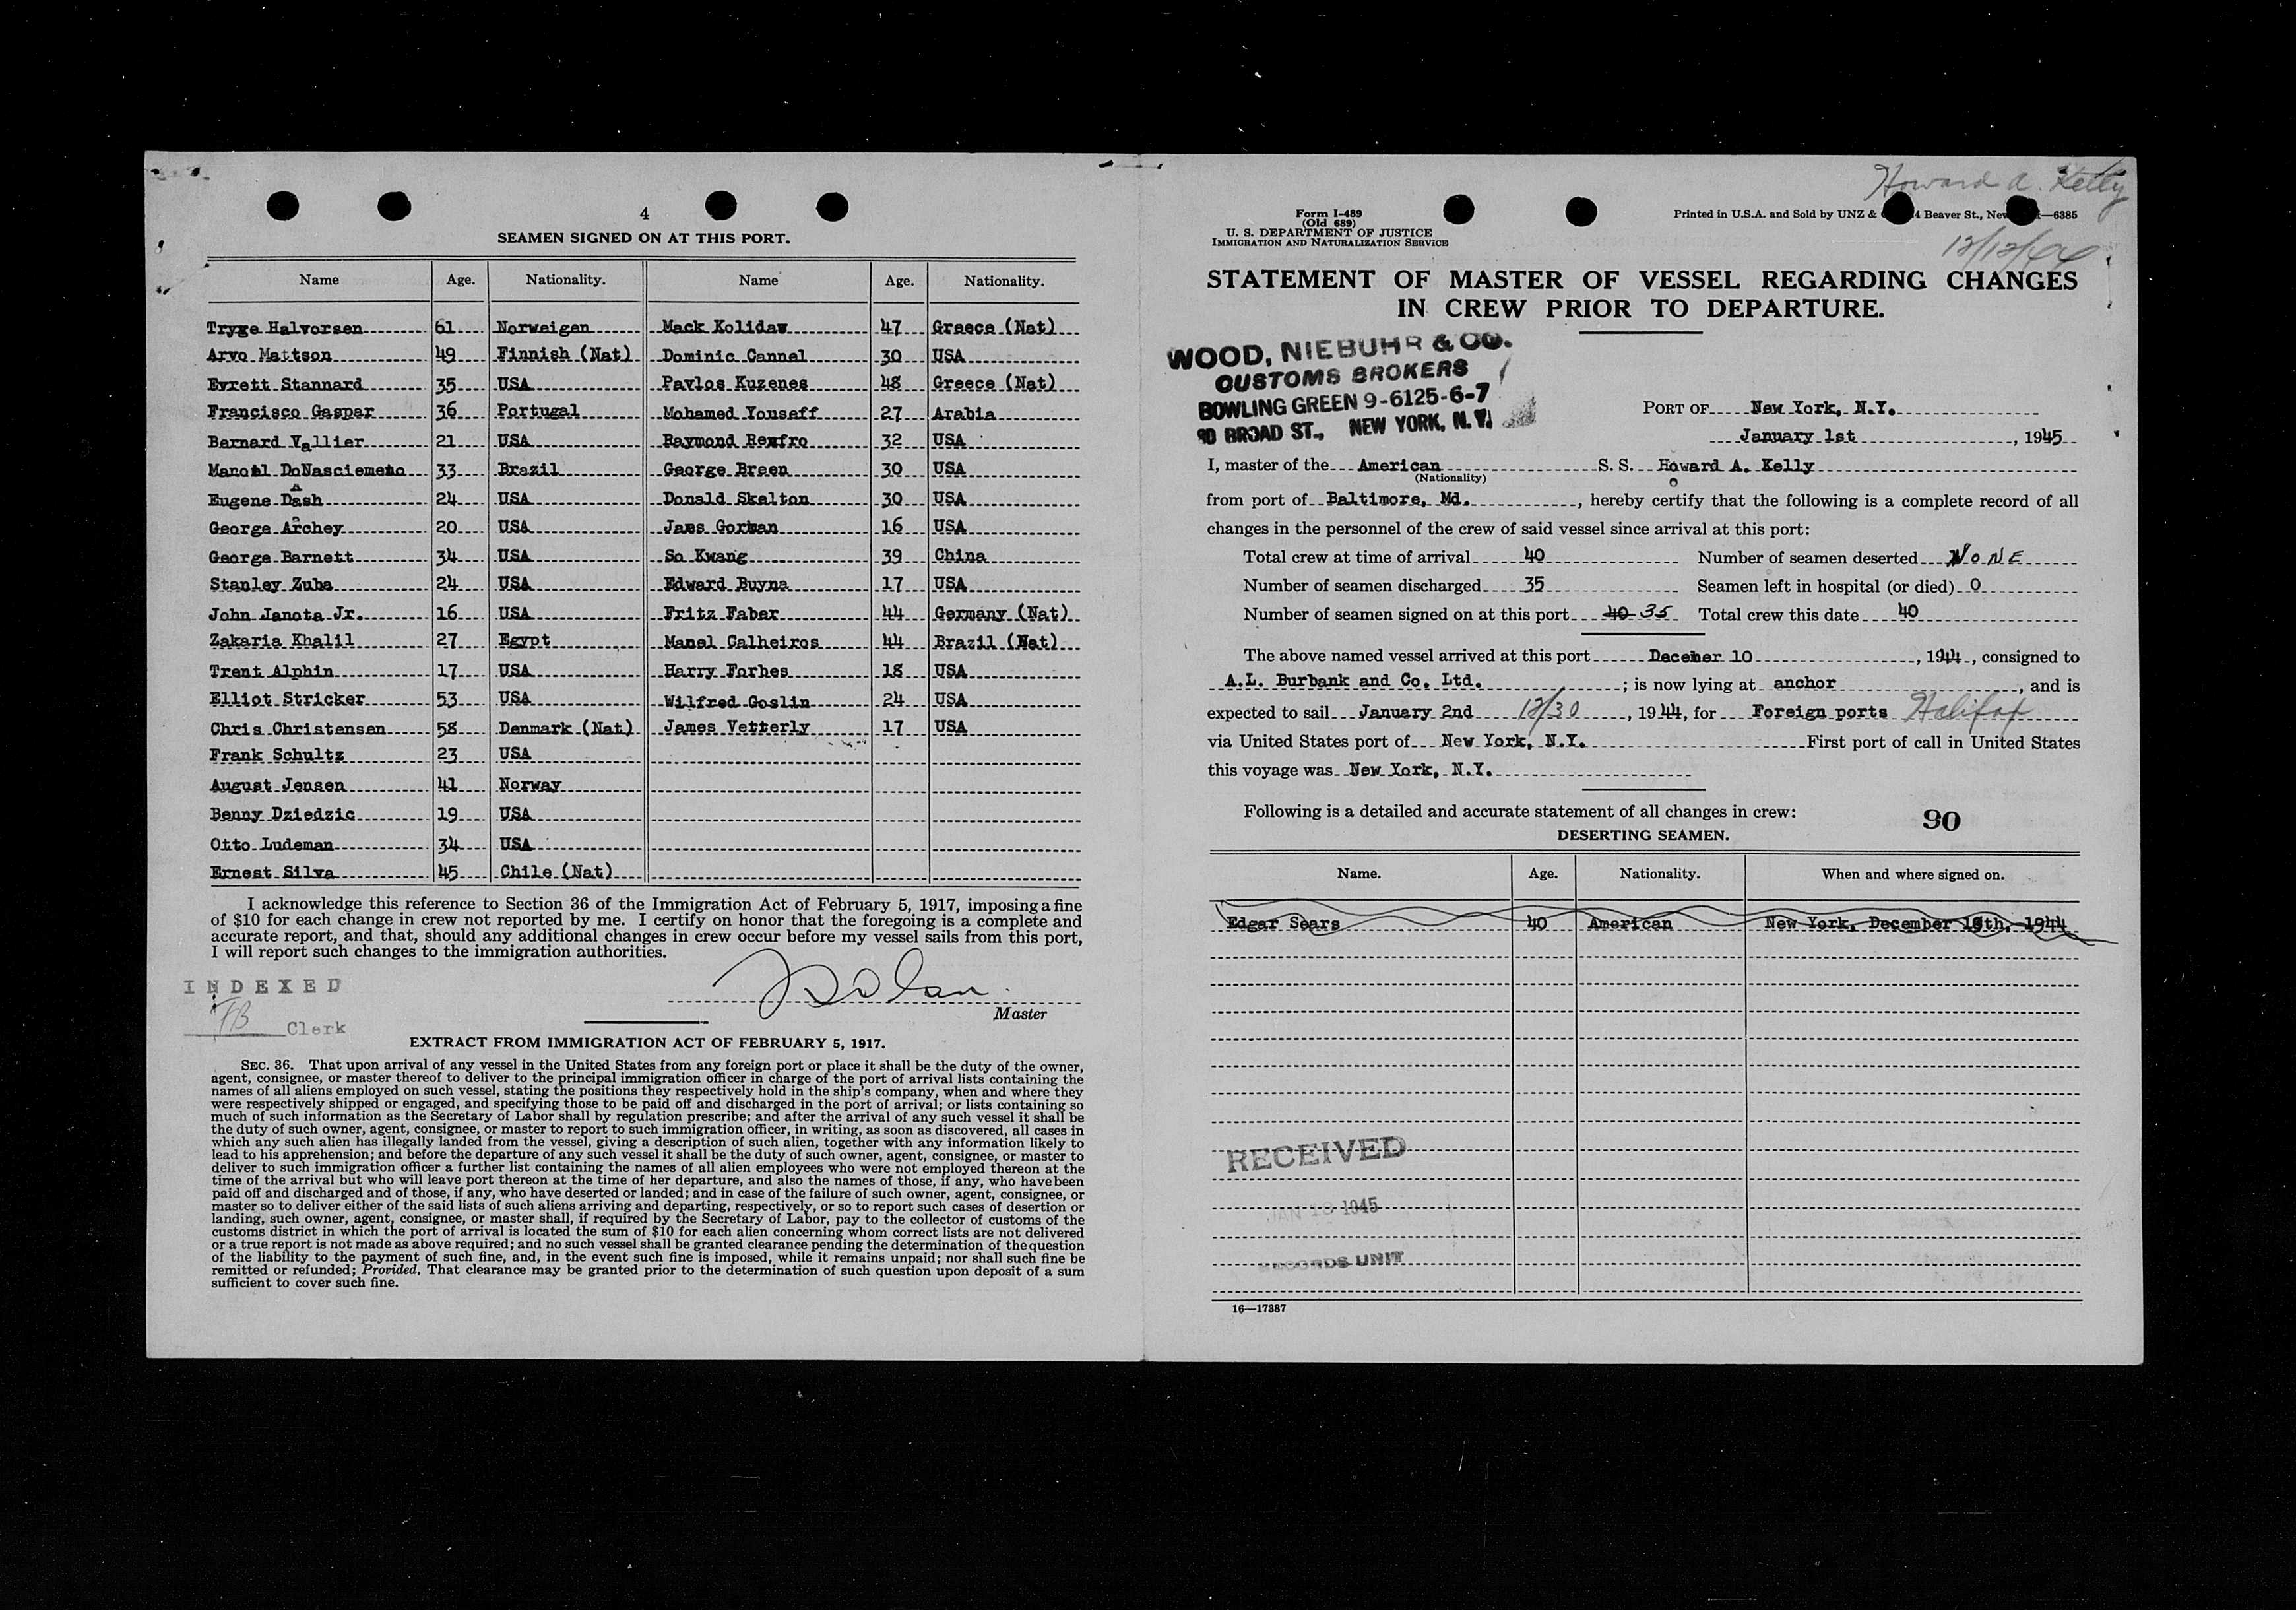 4
SEAMEN SIGNED ON AT THIS PORT.
Name Age. Nationality. Name Age. Nationality.
Tryge Halvorsen 61 Norweigen Mack Kolidaw 47 Greece (Nat)
Arvo Mattson 49 Finnish (Nat) Dominic Cannal 30 USA
Evrett Stannard 35 USA Pavlos Kuzenes 48 Greece (Nat)
Francisco Gaspar 36 Portugal Mohamed Yonseff 27 Arabia
Bernard Vallier 21 USA Raymond Renfro 32 USA
33 Brazil George Breen 30 USA
Eugene Dash 24 USA Donald Skelton 30 USA
George Archey 20 USA Jams Gorman 16 USA
George Barnett 34 USA So Kwang 39 China
Stanley Zuba 24 USA Edward Buyna 17 USA
John Janota Jr. 16 USA Fritz Faber 44 Germany (Nat)
Zakaria Khalil 27 Egypt Manel Calheiros 44 Brazil (Nat)
Trent Alphin 17 USA Harry Forbes 18 USA
Elliot Stricker 53 USA Wilfred Goslin 24 USA
Chris Christensen 58 Denmark (Nat) James Vetterly 17 USA
Frank Schultz 23 USA
August Jensen 41 Norway
Benny Dziedzic 19 USA
Otto Ludeman 34 USA
Ernest Silva 45 Chile (Nat)
I acknowledge this reference to Section 36 of the Immigration Act of February 5, 1917, imposing a fine
of $10 for each change in crew not reported by me. I certify on honor that the foregoing is a complete and
accurate report, and that, should any additional changes in crew occur before my vessel sails from this port,
I will report such changes to the immigration authorities.
INDEXED
FB Clerk
Master
EXTRACT FROM IMMIGRATION ACT OF FEBRUARY 5, 1917.
SEC. 36. That upon arrival of any vessel in the United States from any foreign port or place it shall be the duty of the owner,
agent, consignee, or master thereof to deliver to the principal immigration officer in charge of the port of arrival lists containing the
names of all aliens employed on such vessel, stating the positions they respectively hold in the ship's company, when and where they
were respectively shipped or engaged, and specifying those to be paid off and discharged in the port of arrival; or lists containing so
much of such information as the Secretary of Labor shall by regulation prescribe; and after the arrival of any such vessel it shall be
the duty of such owner, agent, consignee, or master to report to such immigration officer, in writing, as soon as discovered, all cases in
which any such alien has illegally landed from the vessel, giving a description of such alien, together with any information likely to
lead to his apprehension; and before the departure of any such vessel it shall be the duty of such owner, agent, consignee, or master to
deliver to such immigration officer a further list containing the names of all alien employees who were not employed thereon at the
time of the arrival but who will leave port thereon at the time of her departure, and also the names of those, if any, who have been
paid off and discharged and of those, if any, who have deserted or landed; and in case of the failure of such owner, agent, consignee, or
master so to deliver either of the said lists of such aliens arriving and departing, respectively, or so to report such cases of desertion or
landing, such owner, agent, consignee, or master shall, if required by the Secretary of Labor, pay to the collector of customs of the
customs district in which the port of arrival is located the sum of $10 for each alien concerning whom correct lists are not delivered
or a true report is not made as above required; and no such vessel shall be granted clearance pending the determination of the question
of the liability to the payment of such fine, and, in the event such fine is imposed, while it remains unpaid; nor shall such fine be
remitted or refunded; Provided, That clearance may be granted prior to the determination of such question upon deposit of a sum
sufficient to cover such fine.
Howard A. Kelly
Form I-489
(Old 689)
U. S. DEPARTMENT OF JUSTICE
IMMIGRATION AND NATURALIZATION SERVICE
Printed in U.S.A. and Sold by UNZ & 4 Beaver St., New —6385
12/12/44
STATEMENT OF MASTER OF VESSEL REGARDING CHANGES
IN CREW PRIOR TO DEPARTURE.
WOOD, NIEBUHR & CO.
CUSTOMS BROKERS
BOWLING GREEN 9-6125-6-7
90 BROAD ST., NEW YORK, N.Y.
PORT OF New York, N.Y.
January 1st, 1945
I, master of the American S. S. Howard A. Kelly
(Nationality)
from port of Baltimore, Md., hereby certify that the following is a complete record of all
changes in the personnel of the crew of said vessel since arrival at this port:
Total crew at time of arrival 40 Number of seamen deserted NONE
Number of seamen discharged 35 Seamen left in hospital (or died) 0
Number of seamen signed on at this port 40 35 Total crew this date 40
The above named vessel arrived at this port Deceber 10, 1944, consigned to
A.L. Burbank and Co. Ltd.; is now lying at anchor, and is
expected to sail January 2nd 12/30, 1944, for Foreign ports Halifax
via United States port of New York, N.Y. First port of call in United States
this voyage was New York, N.Y.
Following is a detailed and accurate statement of all changes in crew:
90
DESERTING SEAMEN.
Name. Age. Nationality. When and where signed on.
Edgar Sears 40 American New York, December 19th, 1944
RECEIVED
JAN 10 1945
RECORDS UNIT
16—17387